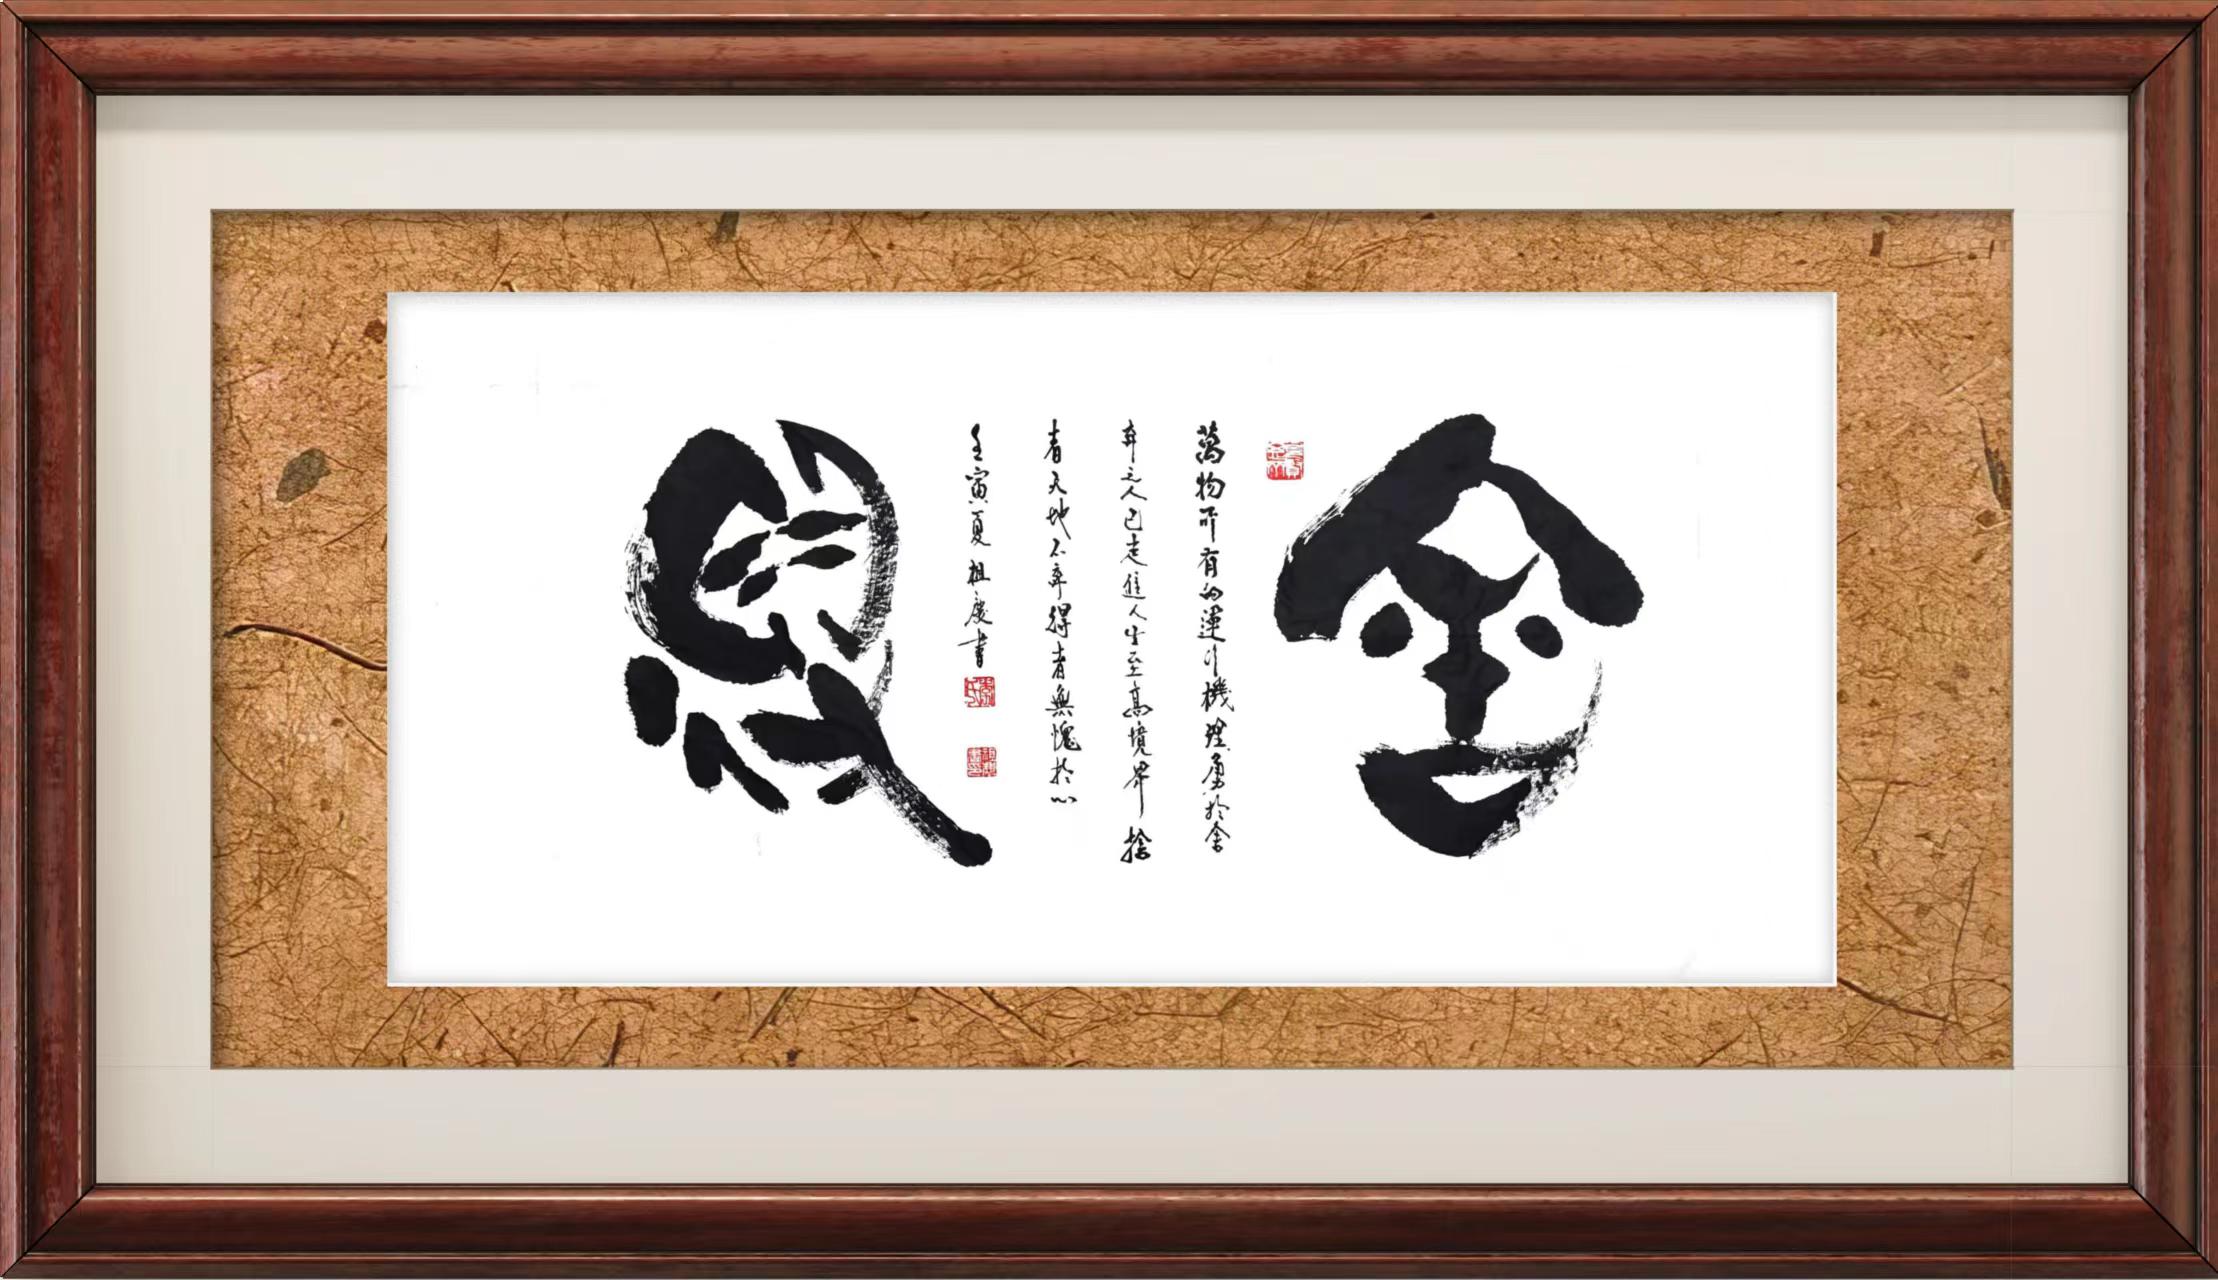 舍
萬物所有的運行機理勇於舍
弃之人已走進人生至高境界捨
者天地不弃得者無愧於心
壬寅夏祖慶書
得